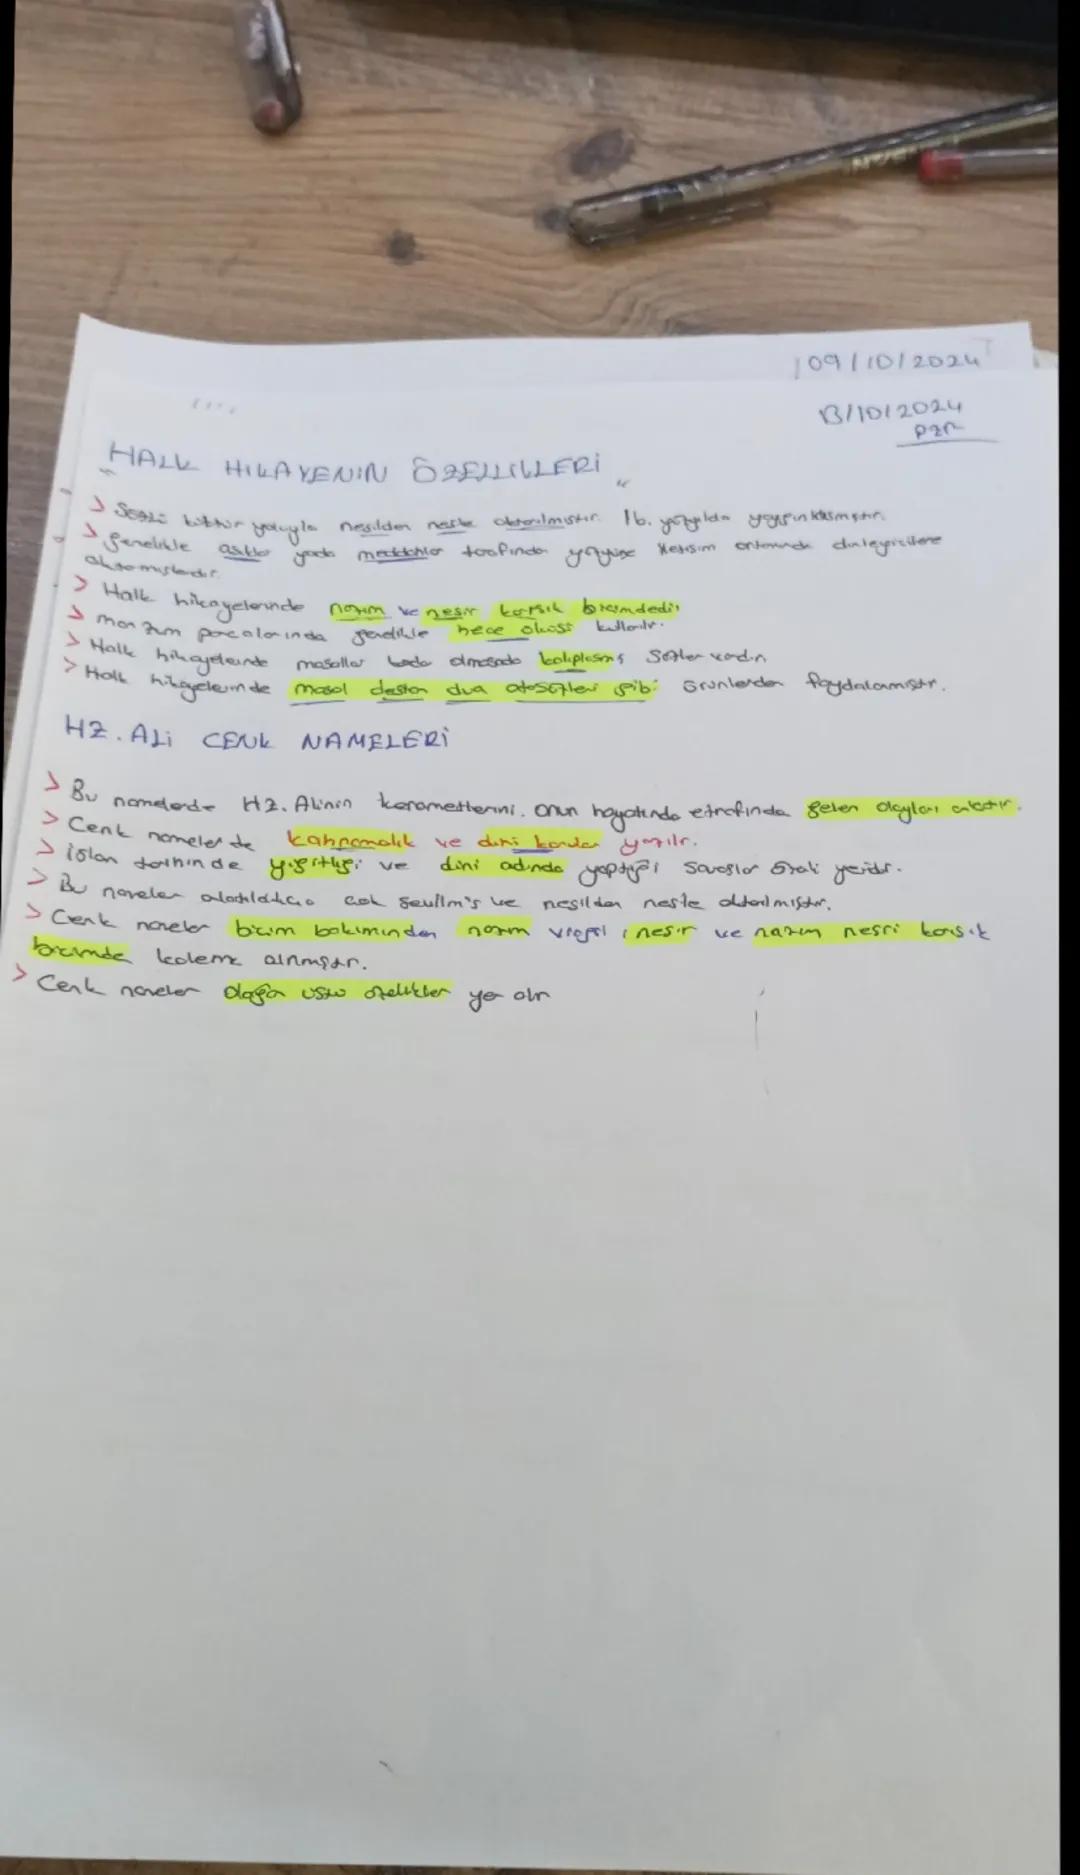 09/10/2024
13/10/2024
pzr
"HALK HİKAYENIN ÖZELLİKLERİ"
> Sözlü kültür yoluyla nesilden nesle aktarılmıştır. 16. yüzyılda yaygınlaşmıştır.
> genelikle aşıklar yada meddahlar tarafında yüzyüze iletişim ortamında dinleyicilere
aktarmışlardır.
> Halk hikayelerinde nazım ve nesir karışık biçimdedir
> manzum parçalarında genelikle hece ölçüsü kullanılır.
> Halk hikayelerinde masallar kadar olmasada kalıplaşmış sözler vardır.
> Halk hikayelerinde masal destan dua atasözleri gibi ürünlerden faydalanmıştır.
HZ. ALİ CENK NAMELERİ
> Bu namelerde HZ. Alinin kerametlerini. onun hayatında etrafında gelen olayları anlatır.
> Cenk nameler de kahramanlık ve dini konular yazılır.
> islan tarihinde yiğitliği ve dini adında yaptığı savaşlar önemli yeridir.
> Bu nameler çok sevilmiş ve nesilden nesle aktarılmıştır.
> Cenk nameler biçim bakımından nazım nesir ve nazım nesri karışık
biçimde kaleme alınmıştır.
> Cenk nameler olağan üstü özelikler yer alır